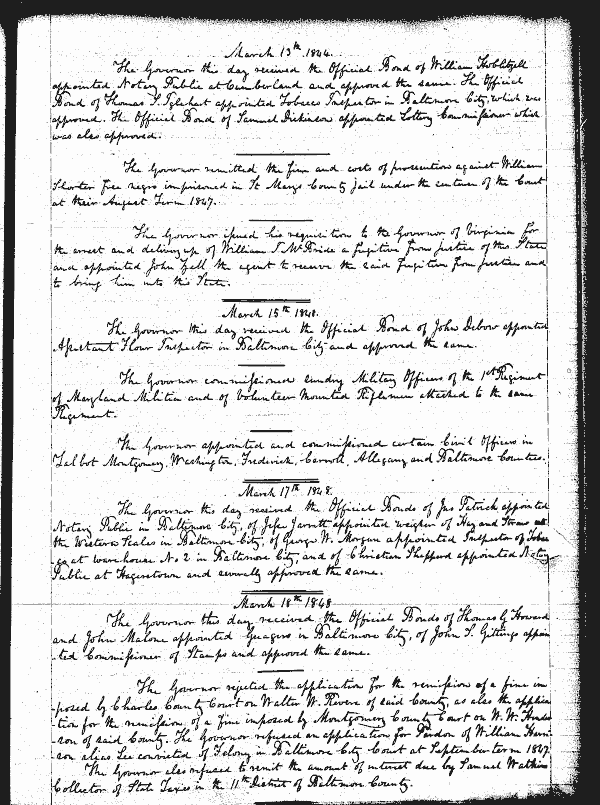 March 13th 1844.
The Governor this day received the Official Bond of William
appointed Notary Public at Cumberland and approved the same. The Official
Bond of Thomas S. Iglehart appointed Tobacco Inspector in Baltimore City, which was
approved. The Official Bond of Samuel Dickinson appointed Lottery Commissioner which
was also approved.
The Governor remitted the fine and costs of prosecution against William
Shorter free negro imprisoned in St Marys County Jail under the sentence of the Court
at their August Term 1847.
The Governor issued his requisition to the Governor of Virginia for
the arrest and delivery up of William McBride a fugitive from justice of this State
and appointed John the agent to receive the said fugitive from justice and
to bring him into this State.
March 15th 1848.
The Governor this day received the Official Bond of John Debow appointed
Assistant Flour Inspector in Baltimore City and approved the same.
The Governor commissioned sundry Military Officers of the 1st Regiment
of Maryland Militia and of Volunteer Mounted Riflemen attached to the same
Regiment.
The Governor appointed and commissioned certain Civil Officers in
Talbot Montgomery, Washington, Frederick, Carroll, Allegany and Baltimore Counties.
March 17th 1848.
The Governor this day received the Official Bonds of Jas Patrick appointed
Notary Public in Baltimore City, of Jesse Jarrett appointed weigher of Hay and Straw at
the Western Scales in Baltimore City, of George W. Morgan appointed Inspector of Tobac
-co at warehouse No 2 in Baltimore City, and of Christian Sheppard appointed Notary
Public at Hagerstown and severally approved the same.
March 18th 1848
The Governor this day received the Official Bonds of Thomas G Howard
and John Malone appointed Guagers in Baltimore City, of John S. Gittings appoin
-ted Commissioner of Stamps and approved the same.
The Governor rejected the application for the remission of a fine im
posed by Charles County Court on Walter W. Rivera of said County, as also the applica
tion for the remission of a fine imposed by Montgomery County Court on W. W. Hender
son of said County. The Governor refused an application for Pardon of William Harri
-son alias Lee convicted of Felony in Baltimore City Court at September term 1847.
The Governor also refused to remit the amount of interest due by Samuel Watkins
Collector of State Taxes in the 11th District of Baltimore County.